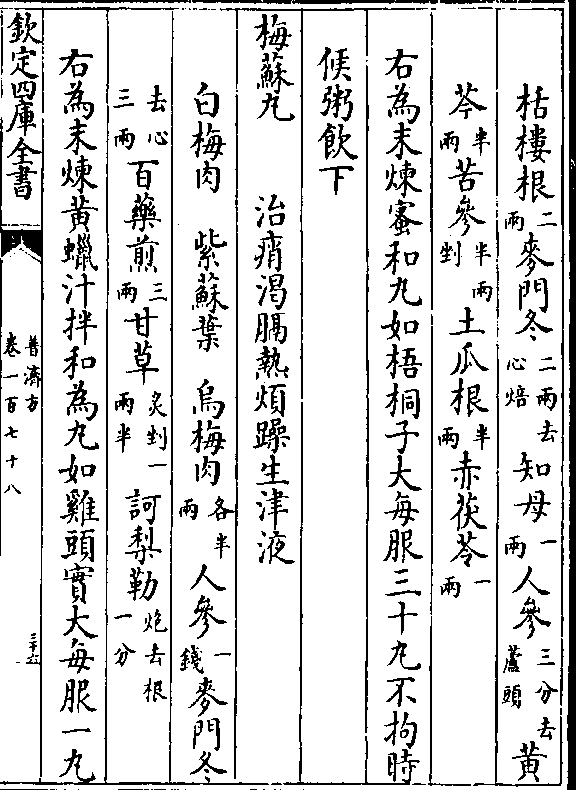 栝樓根二兩麥門冬二兩去心焙知母一兩人參三分去蘆頭黃
芩半兩苦參半兩剉土瓜根半兩赤茯苓一兩
右為末煉蜜和丸如梧桐子大每服三十丸不拘時
候粥飲下
梅蘇丸 治痟渴膈熱煩躁生津液
白梅肉 紫蘇葉 烏梅肉各半兩人參一錢麥門冬
去心三兩百藥煎三兩甘草炙剉一兩半訶梨勒炮去根一分
右為末煉黃蠟汁拌和為丸如雞頭實大每服一丸
欽定四庫全書
普濟方
卷一百七十八
三十六